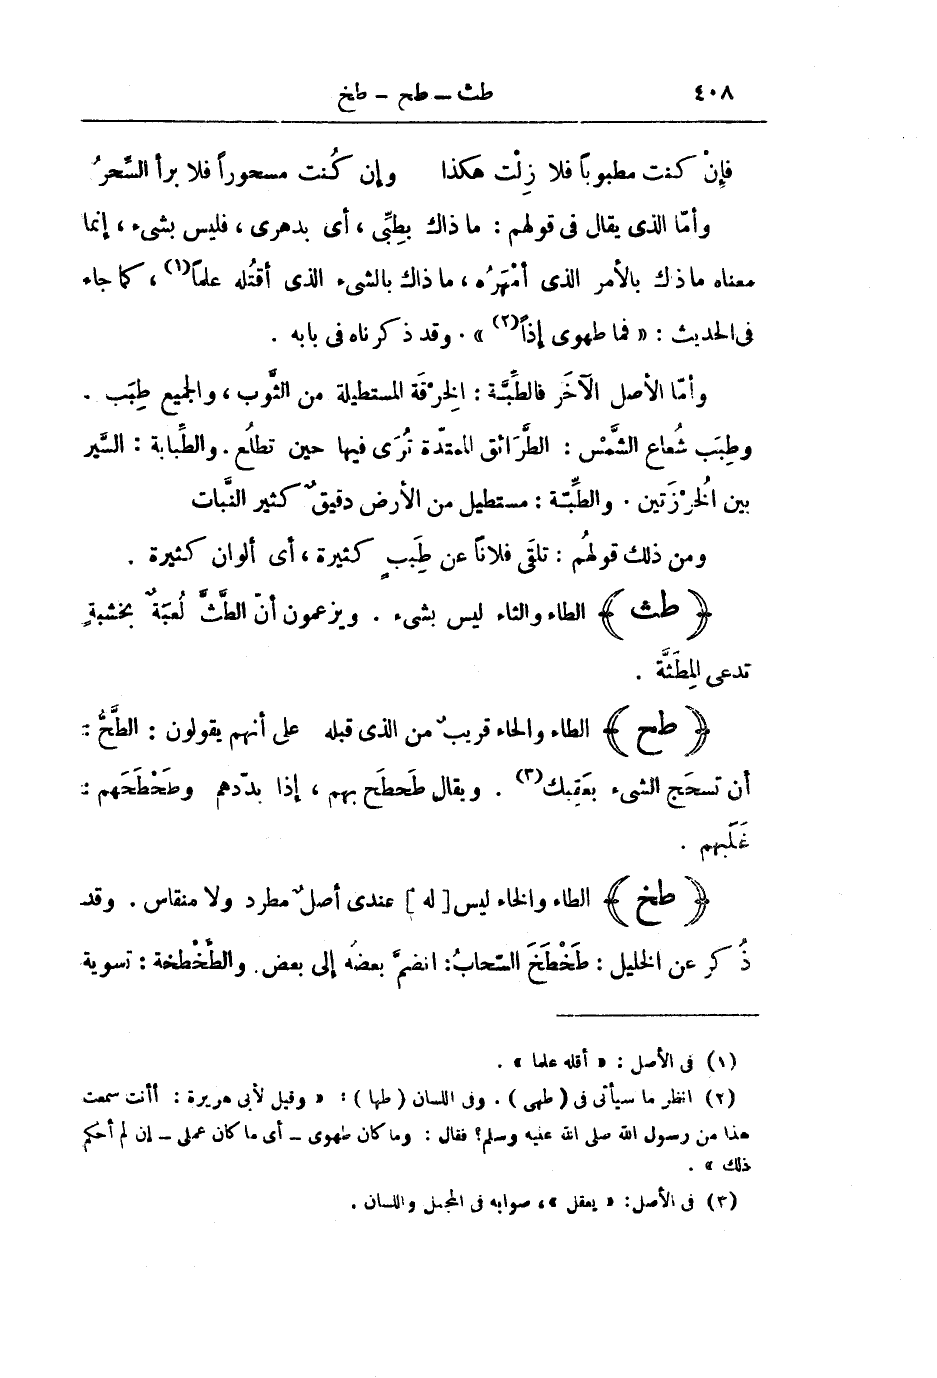 ٤٠٨ طث ــ طح - طخ
فإِنْ كنت مطبوباً فلا زِلْت هكذا وإن كُنت مسحوراً فلا برأ السَّحرُ
وأمّا الذى يقال فى قولهم : ما ذاك بِطِبِّى ، أى بدهرى ، فليس بشىء ، إنما
معناه ما ذك بالأمر الذى أَمْهَرُه ، ما ذاك بالشىء الذى أقتُله علماً(١) ، كما جاء
فى الحديث : « فما طهوى إذاً(٢) » . وقد ذكرناه فى بابه .
وأمّا الأصل الآخَر فالطِّبَّة : الخِرْقَة المستطيلة من الثَّوب ، والجميع طِبَب .
وطِبَب شُعاع الشَّمْس : الطَّرَائق الممتدّة تُرَى فيها حين تطلُع . والطِّبابة : السَّير
بين الخُرْزَتين . والطِّبّة : مستطيل من الأرض دقيقٌ كثير النَّبات
ومن ذلك قولهُم : تلقَى فلاناً عن طِبَبٍ كثيرة ، أى ألوان كثيرة .
﴿ طث ﴾ الطاء والثاء ليس بشىء . ويزعمون أنّ الطَّثَّ لُعبَةٌ بخشبةٍ
تدعى المِطَثَّة .
﴿ طح ﴾ الطاء والحاء قريبٌ من الذى قبله على أنهم يقولون : الطَّحُّ :
أن تسحَج الشىء بعَقِبك(٣) . ويقال طَحطَح بهم ، إذا بدّدهم وطَحْطَحَهم :
غَلَبهم .
﴿ طخ ﴾ الطاء والخاء ليس [ له ] عندى أصلٌ مطرد ولا منقاس . وقد
ذُكر عن الخليل : طَخْطَخَ السّحابُ : انضمَّ بعضُه إلى بعض . والطَّخْطخة : تسوية
(١) فى الأصل : « أقله علما » .
(٢) انظر ما سيأتى فى ( طهى ) . وفى اللسان ( طها ) : « وقيل لأبى هريرة : أأنت سمعت
هذا من رسول الله صلى الله عليه وسلم؟ فقال : وما كان طهوى ــ أى ما كان عملى ــ إن لم أحكم
ذلك » .
(٣) فى الأصل : « يعقل » ، صوابه فى المجمل واللسان .